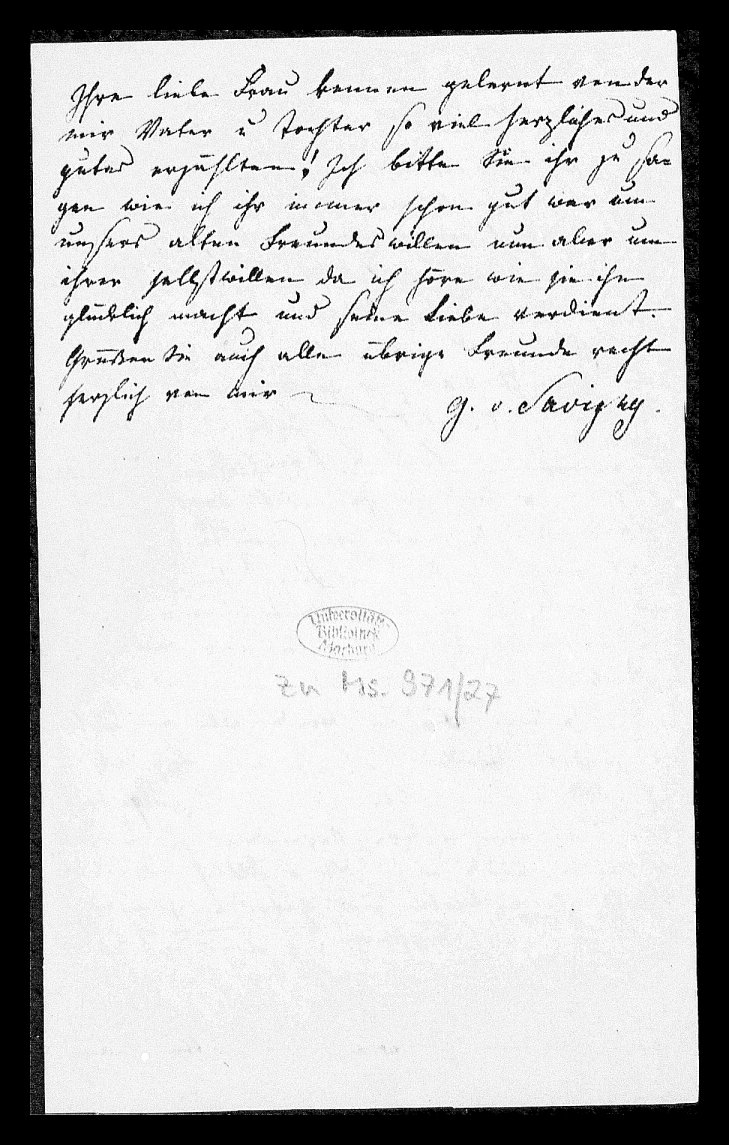 Ihre liebe Frau kennen gelernt von der
mir Vater u Tochter so viel herzliches und
gutes erzählten! Ich bitte Sie ihr zu sa-
gen wie ich ihr immer schon gut war um
unsers alten Freundes willen nun aber um
ihrer selbstwillen da ich höre wie sie ihn
glücklich macht und seine Liebe verdient.
Grüßen Sie auch alle übrige Freunde recht
herzlich von mir
G. v. Savigny.
Universitäts
Bibliothek
Marburg
Zu Ms. 971/27